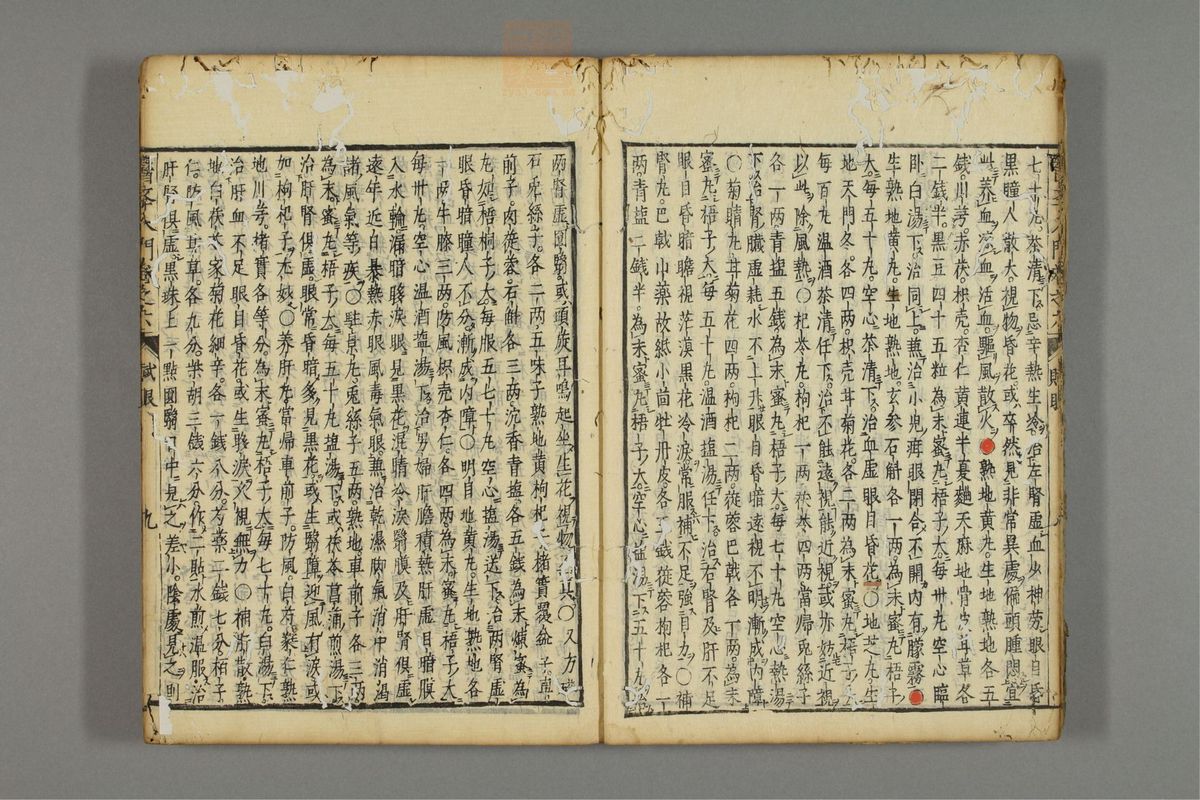 七十丸茶清下忌辛熱生冷治左腎虛血少神勞眼目昏
黒瞳人散大視物昏花或卒然見非常異處偏頭腫悶宜
此養血凉血活血驅風散火●熟地黄丸生地熟地各五
錢川芎赤茯枳壳杏仁黄連半夏麯天麻地骨皮甘草各
二錢半黒豆四十五粒為末蜜丸梧子大每卅丸空心臨
卧白湯下治同上兼治小兒疳眼閉合不開内有朦霧●
生熟地黄丸生地熟地玄參石斛各一两為末蜜丸梧子
大每五十丸空心茶清下治血虛眼目昏花○地芝丸生
地天門冬各四两枳壳甘菊花各二两為末蜜丸梧子大
每百丸温酒茶清任下治不能遠視能近視或亦妨近視
以此除風熱○杞苓丸枸杞一两茯苓四两當歸兎絲子
各一两青塩五錢為末蜜丸梧子大每七十丸空心熱湯
下治腎臟虛耗水不上升眼目昏暗遠視不明漸成内障
○菊睛丸甘菊花四两枸杞二两蓯蓉巴戟各一两為末
蜜丸梧子大每五十丸温酒塩湯任下治右腎及肝不足
眼目昏暗瞻視茫漠黒花冷淚常服補不足強目力○補
腎丸巴戟山藥故紙小茴牡丹皮各一錢蓯蓉枸杞各一
两青塩二錢半為末蜜丸梧子大空心塩湯下五十丸治
两腎虛圓翳或頭旋耳鳴起坐生花視物○又方磁
石兎絲子各二两五味子熟地黄枸杞楮實覆盆子車
前子肉蓯蓉石斛各三两沉香青塩各五錢為末煉蜜為
丸如梧桐子大每服五七十丸空心塩湯送下治两腎虛
眼昏暗瞳人不分漸成内障○明目地黄丸生地熟地各
一两牛膝三两防風枳壳杏仁各四两為末蜜丸梧子大
每卅丸空心温酒塩湯下治男婦肝膽積熱肝虛目暗膜
入水輪漏暗眵淚眼見黒花混睛冷淚翳膜及肝腎俱虛
遠年近日暴熱赤眼風毒氣眼兼治乾濕脚氣消中消渴
諸風氣等疾○駐景丸兎絲子五两熟地車前子各三两
為末蜜丸梧子大每五十丸塩湯下或茯苓菖蒲煎湯下
治肝腎俱虛眼常昏暗多見黒花或生翳障迎風有淚或
加枸杞子尤妙○養肝丸當歸車前子防風白芍蕤仁熟
地川芎楮實各等分為末蜜丸梧子大每七十丸白湯下
治肝血不足眼目昏花或生眵淚久視無力○補肝散熟
地白茯苓家菊花細辛各一錢八分芍藥二錢七分栢子
仁防風甘草各九分柴胡三錢六分作二貼水煎温服治
肝腎俱虛黒珠上一點圓翳日中見之差小陰處見之則
試眼
九